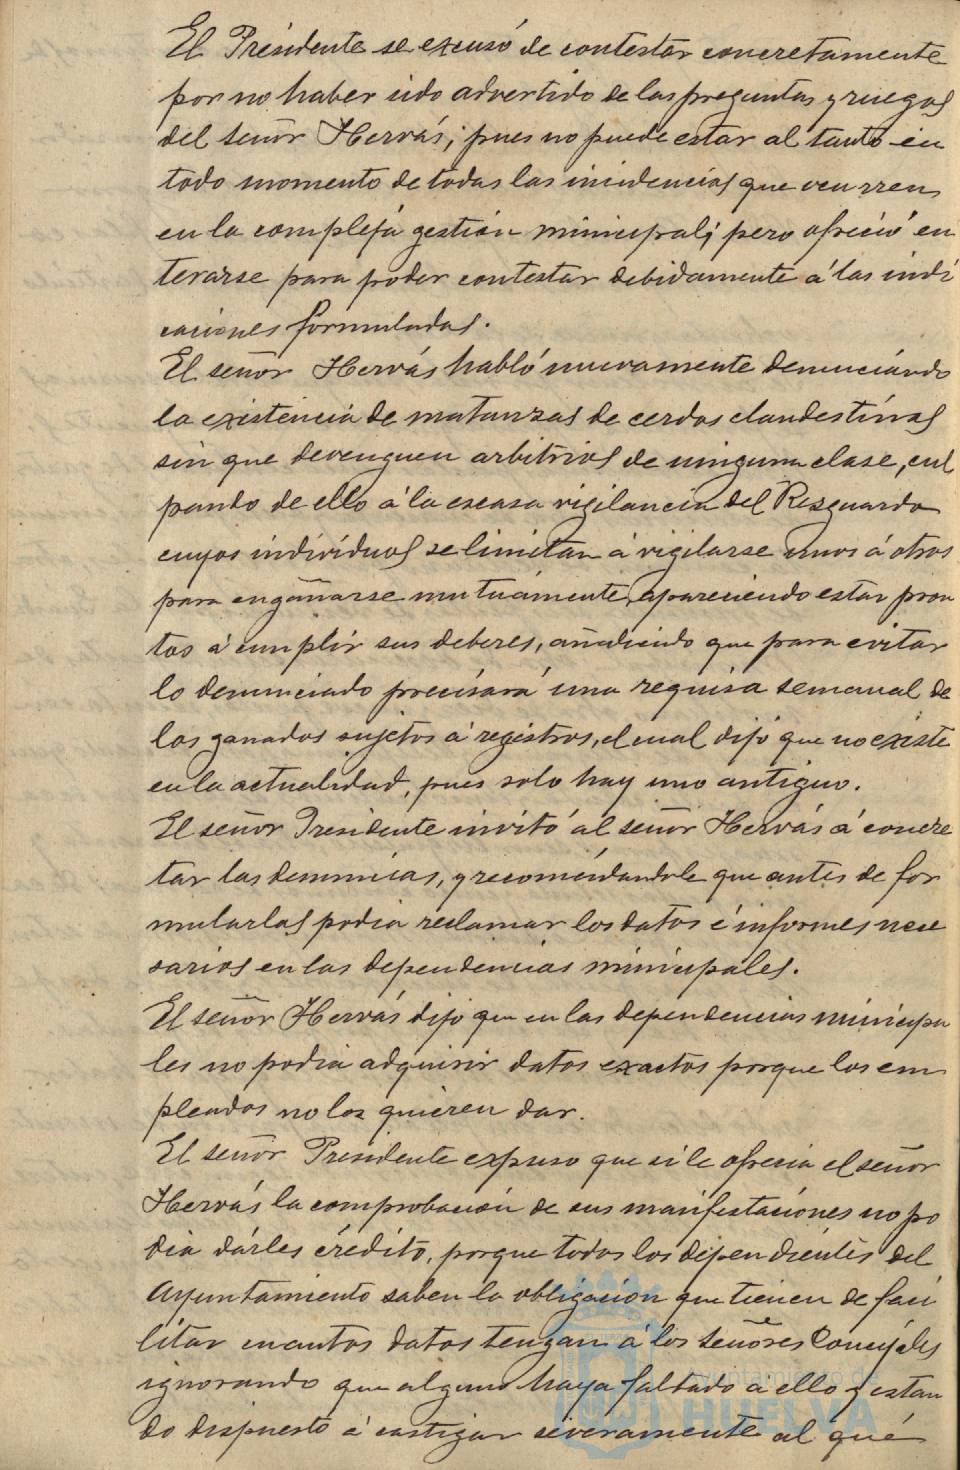 El Presidente se excusó de contestar concretamente
por no haber sido advertido de las preguntas y ruegos
del señor Hervás; pues no puede estar al tanto en
todo momento de todas las incidencias que ocurren
en la compleja gestión municipal; pero ofreció en
terarse para poder contestar debidamente á las indi
caciones formuladas.
El señor Hervás habló nuevamente denunciando
la existencia de matanzas de cerdos clandestinas
sin que devenguen arbitrios de ninguna clase, cul
pando de ello á la escasa vigilancia del Resguardo
cuyos individuos se limitan á vigilarse unos á otros
para engañarse mutuamente, apareciendo estar pron
tos á cumplir sus deberes, añadiendo que para evitar
lo denunciado precisará una requisa semanal de
los ganados sujetos á registros, el cual dijo que no existe
en la actualidad, pues solo hay uno antiguo.
El señor Presidente invitó al señor Hervás á concre
tar las denuncias, y recomendandole que antes de for
mularlas podia reclamar los datos é informes nece
sarios en las dependencias municipales.
El señor Hervás dijo que en las dependencias municipa
les no podia adquirir datos exactos porque los em
pleados no los quieren dar.
El señor Presidente expuso que si le ofrecia el señor
Hervás la comprobación de sus manifestaciones no po
dia dárles crédito, porque todos los dependientes del
Ayuntamiento saben la obligación que tienen de faci
litar cuantos datos tengan á los señores Concejales
ignorando que alguno haya faltado á ello y estan
do dispuesto á castigar severamente al que
Ayuntamiento de
HUELVA